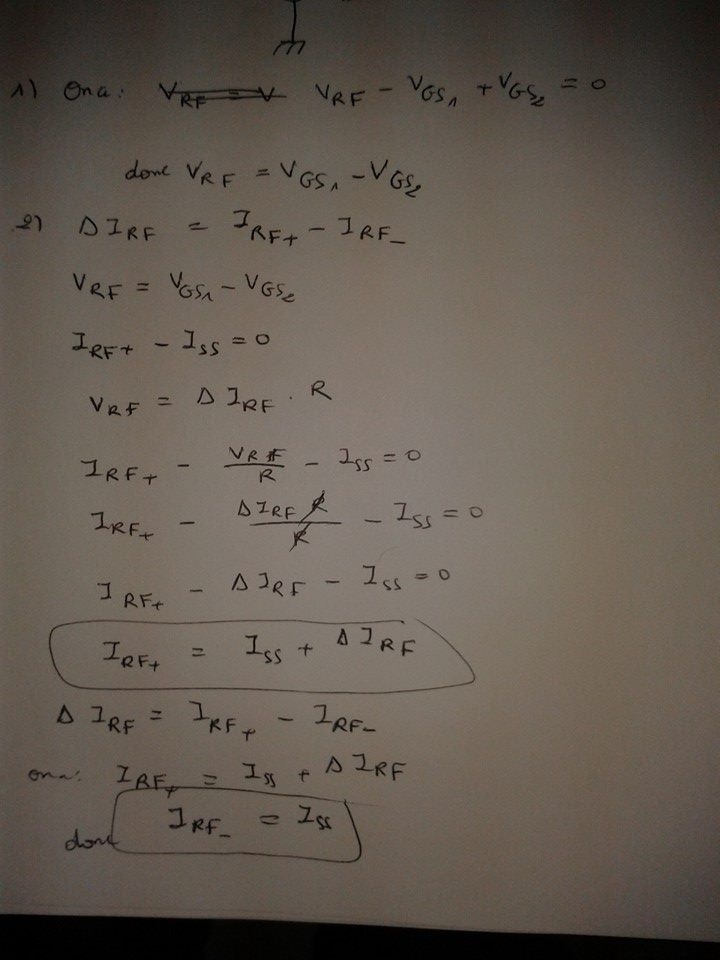 1) On a : V_RF = V V_RF - V_GS1 + V_GS2 = 0
donc V_RF = V_GS1 - V_GS2
2) Δ I_RF = I_RF+ - I_RF-
V_RF = V_GS1 - V_GS2
I_RF+ - I_SS = 0
V_RF = Δ I_RF . R
I_RF+ - V_RF/R - I_SS = 0
I_RF+ - Δ I_RF R/R - I_SS = 0
I_RF+ - Δ I_RF - I_SS = 0
I_RF+ = I_SS + Δ I_RF
Δ I_RF = I_RF+ - I_RF-
on a : I_RF+ = I_SS + Δ I_RF
donc I_RF- = I_SS